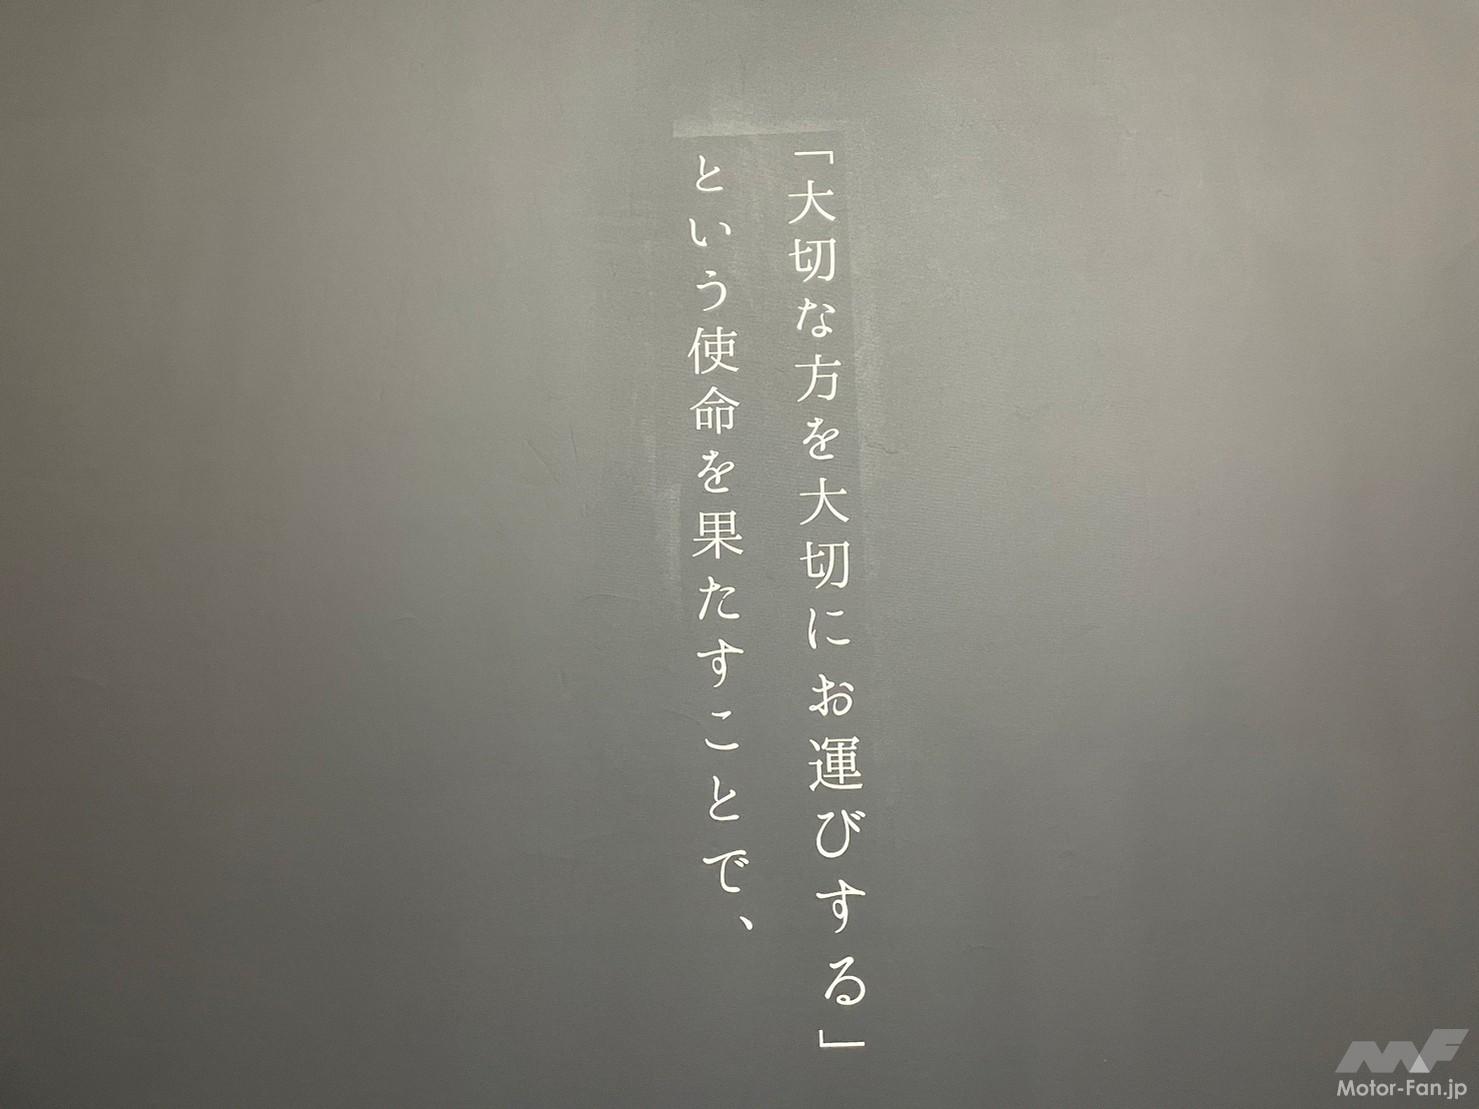 「大切な方を大切にお運びする」
という使命を果たすことで、
MF
Motor-Fan.jp